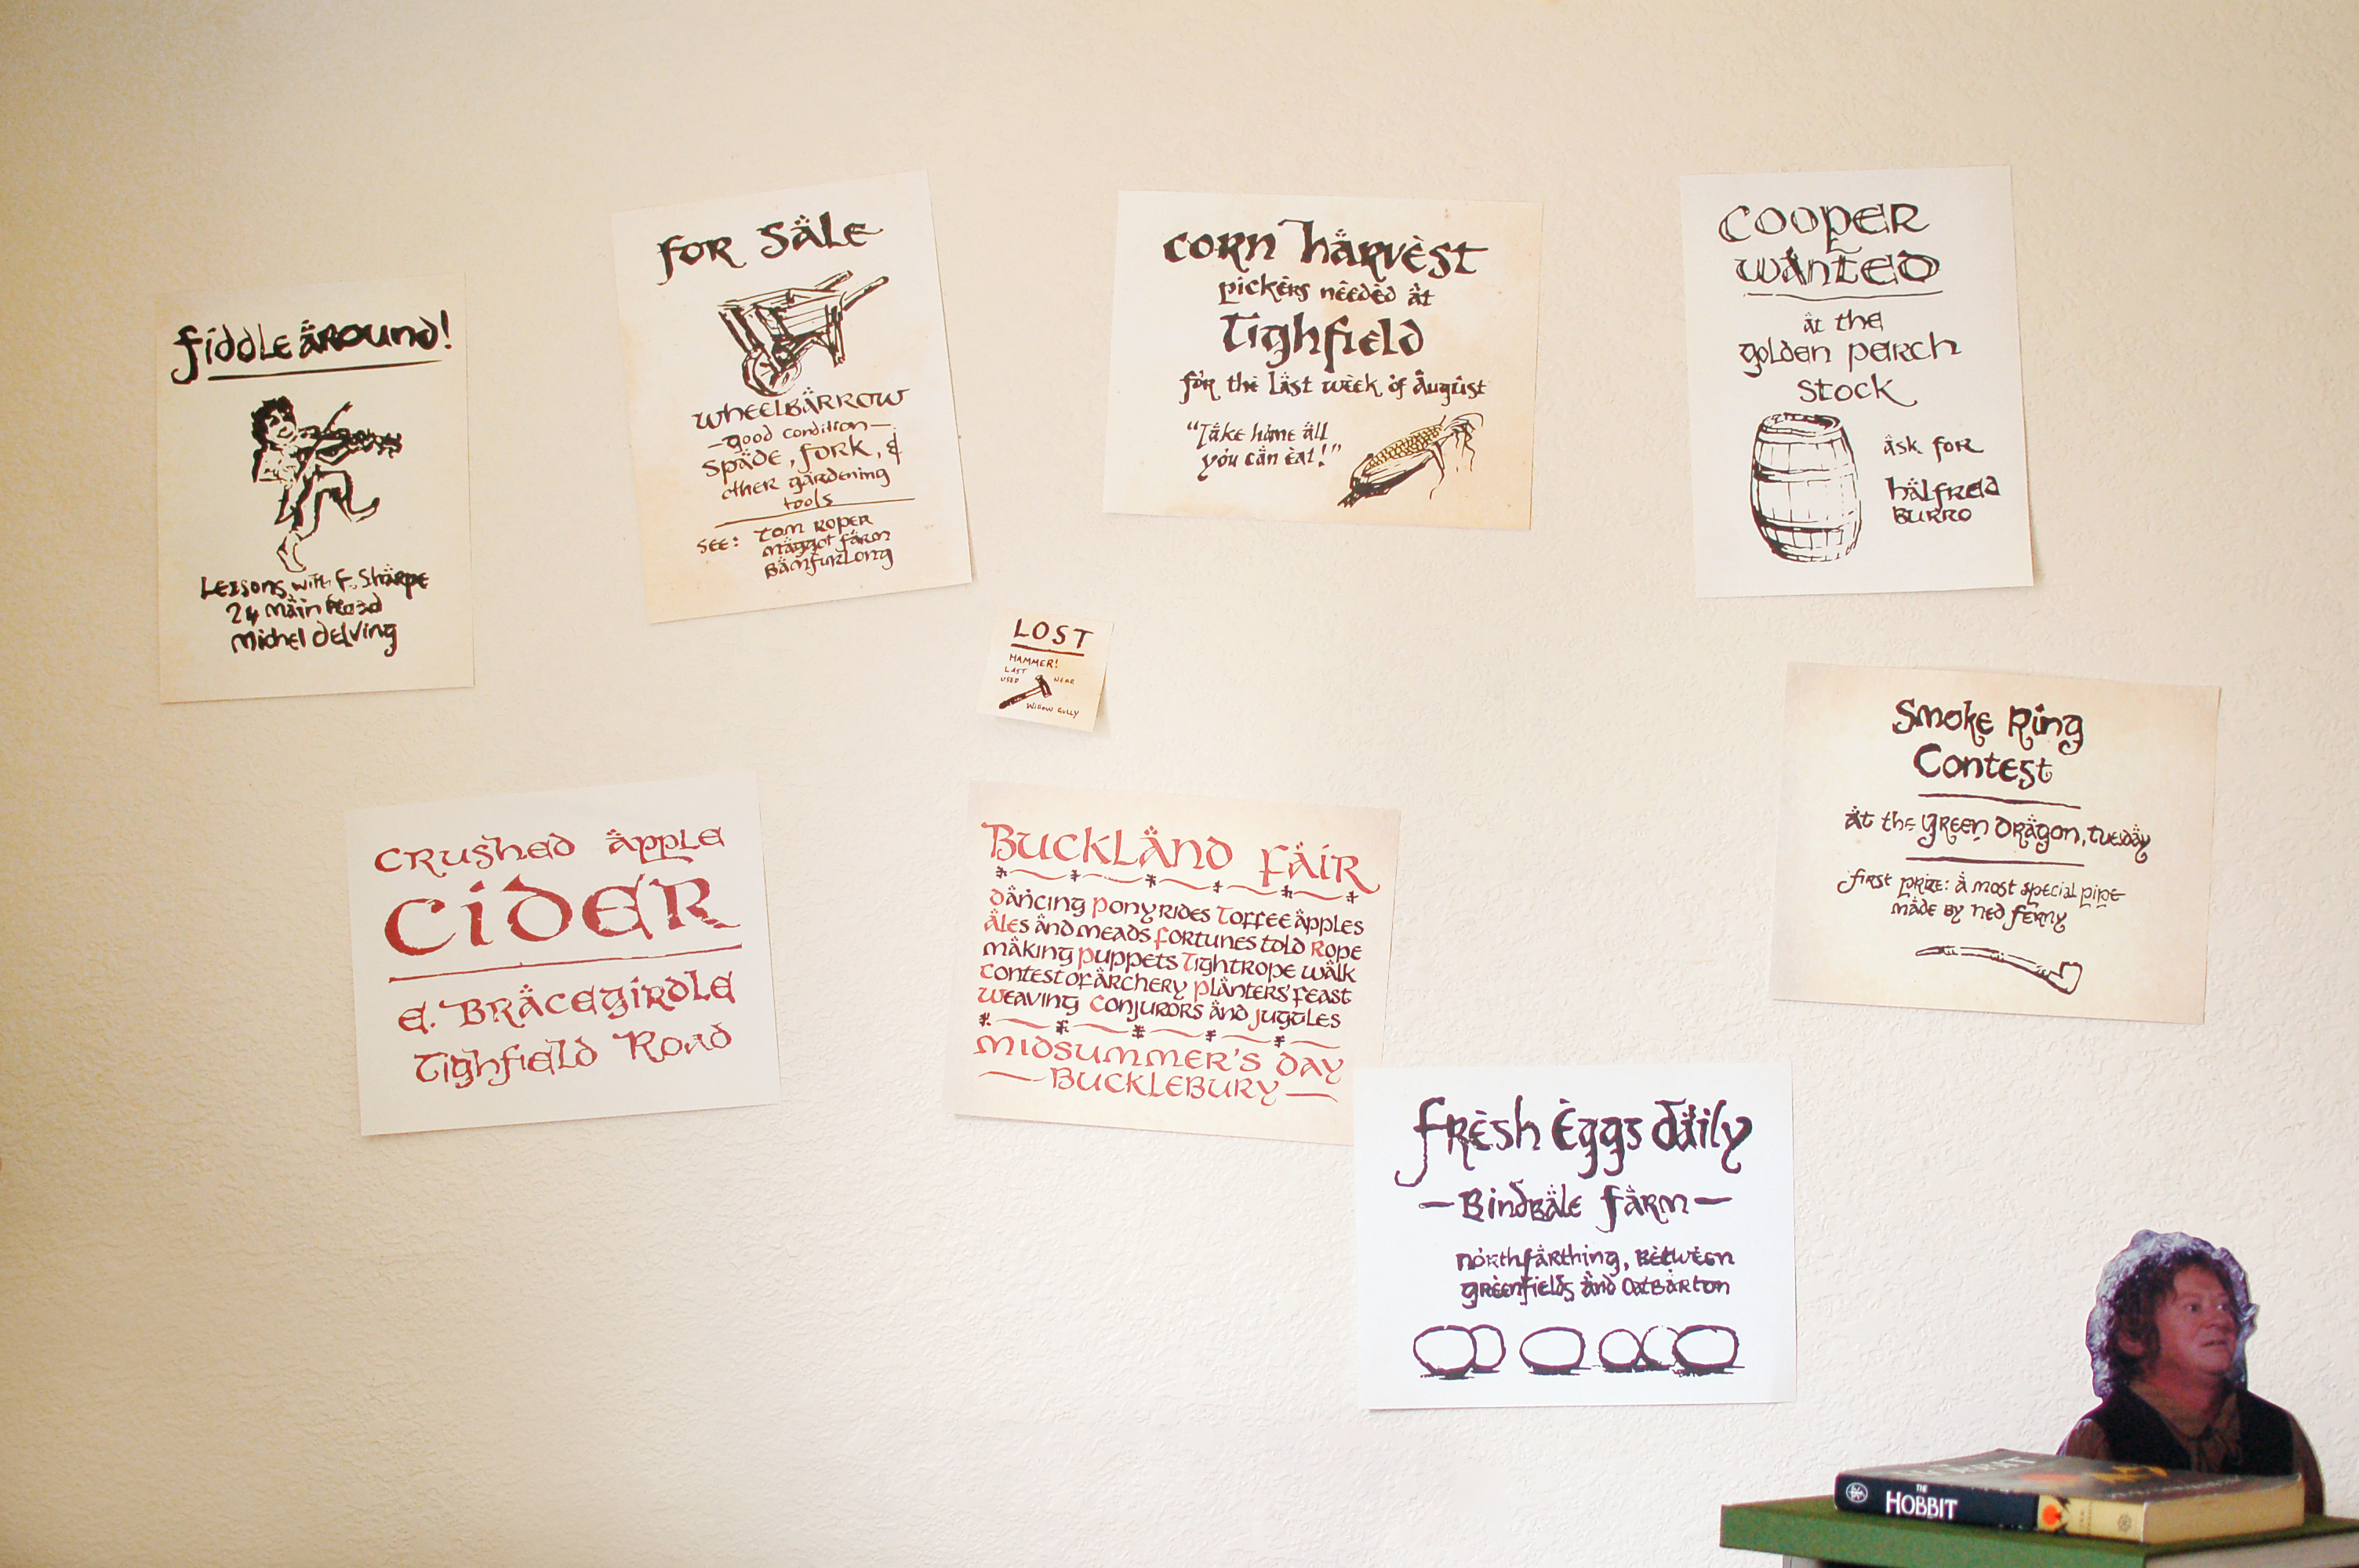 Fiddle äround!
Lessons with F. Shärpe
24 Mäin Road
Michel Delving
For Säle
Wheelbärrow
—good condition—
späde, fork, &
other gärdening
tools
See: Tom Roper
Mäggot Färm
Bämfurlong
Corn Härvèst
pickèrs nèedèd ät
Tighfièld
för the läst wèek öf äugüst
“Täke höme äll
you cän èat!”
Cooper
Wänted
ät the
golden perch
stock
äsk for
Hälfred
Burro
LOST
HAMMER!
LAST
USED NEAR
WILLOW GULLY
Smoke Ring
Contest
ät the Green Drägon, Tuesdäy
first prize: ä most special pipe
mäde by Ned Ferny
Crushed äpple
Cider
E. Bräcegirdle
Tighfield Road
Buckländ Fäir
Däncing Pony rides Toffee äpples
äles änd meads Fortunes told Rope
mäking Puppets Tightrope wälk
Contest of ärchery Plänters' feast
Weaving Conjurors änd Juggles
Midsummer's Day
—Bucklebury—
Frèsh Èggs Däily
—Bindbäle Färm—
Nörthfärthing, bètwèen
Grèenfields änd Oatbärton
THE
HOBBIT